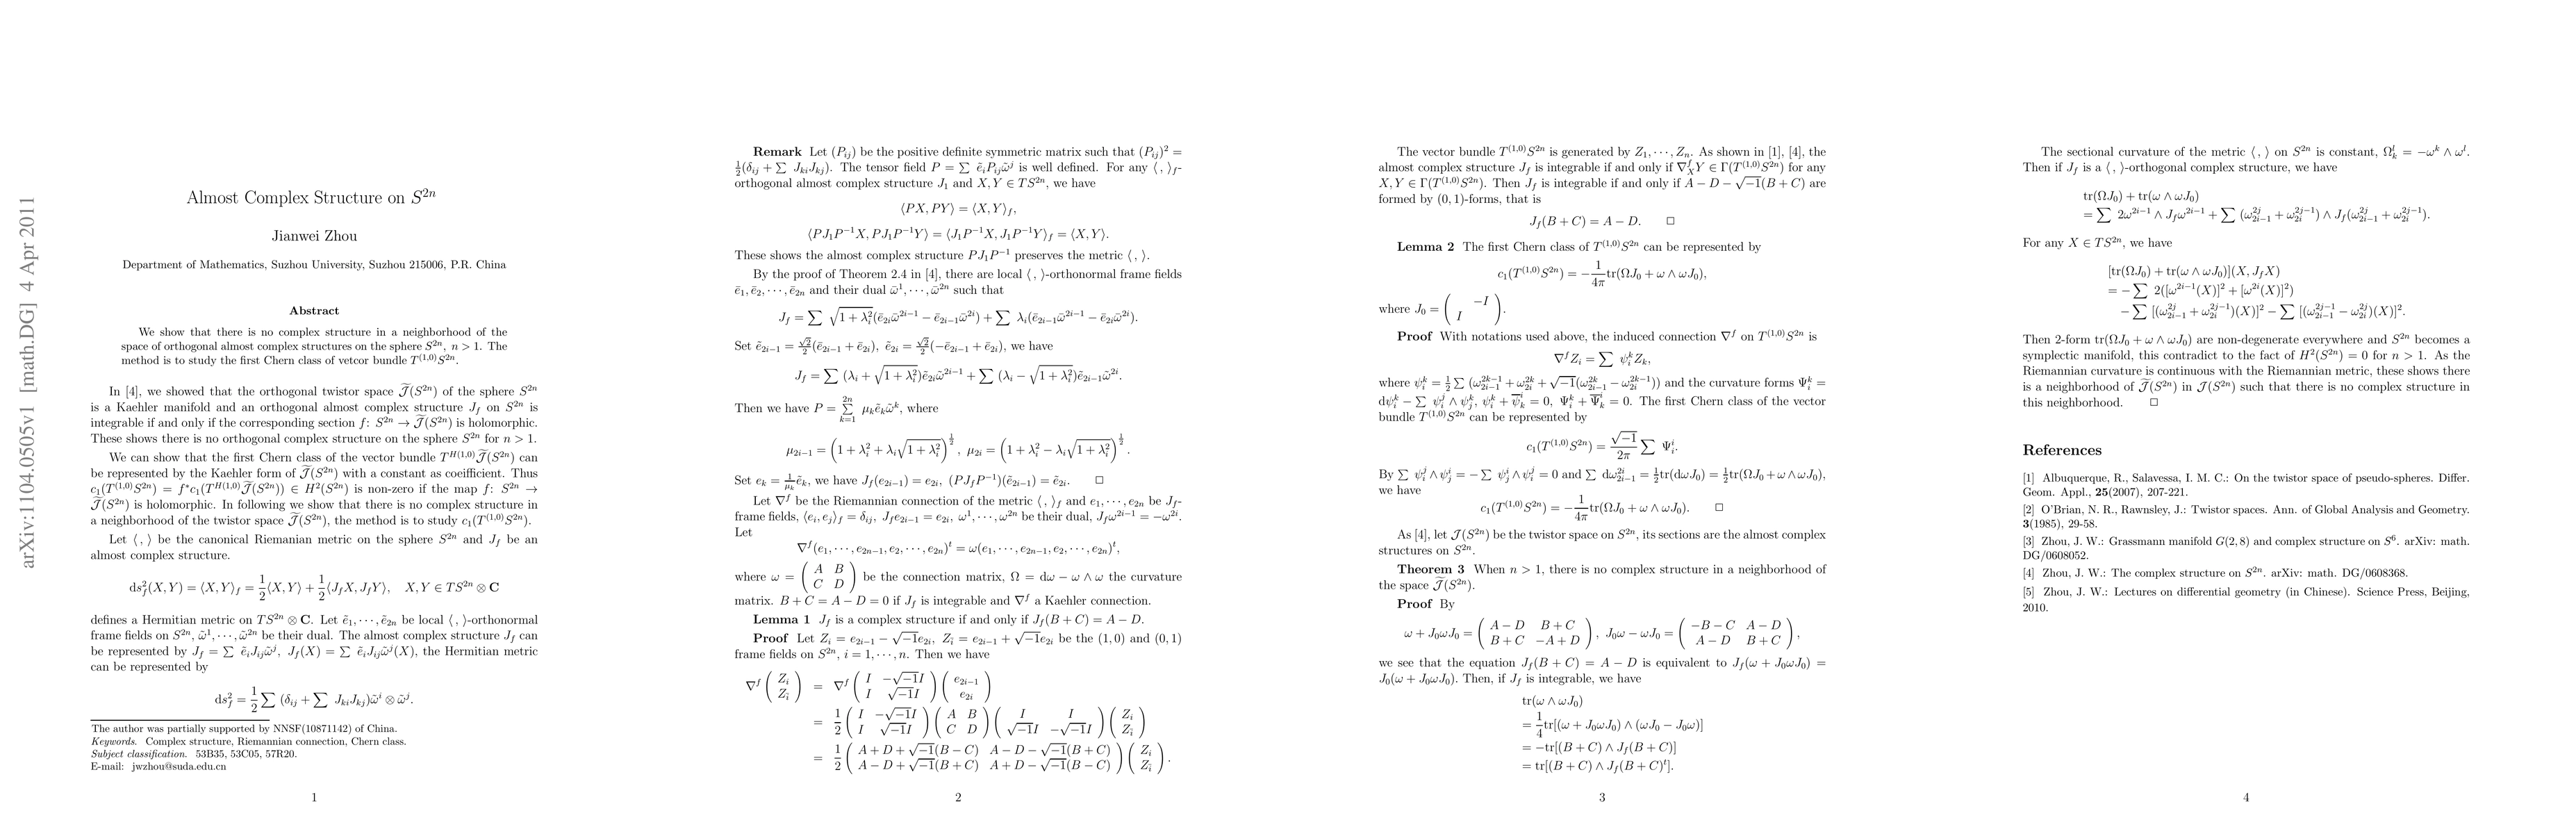 arXiv:1104.0505v1 [math.DG] 4 Apr 2011
Almost Complex Structure on S^{2n}
Jianwei Zhou
Department of Mathematics, Suzhou University, Suzhou 215006, P.R. China
Abstract
We show that there is no complex structure in a neighborhood of the
space of orthogonal almost complex structures on the sphere S^{2n}, n > 1. The
method is to study the first Chern class of vetcor bundle T^{(1,0)}S^{2n}.
In [4], we showed that the orthogonal twistor space \widetilde{J}(S^{2n}) of the sphere S^{2n}
is a Kaehler manifold and an orthogonal almost complex structure J_f on S^{2n} is
integrable if and only if the corresponding section f: S^{2n} → \widetilde{J}(S^{2n}) is holomorphic.
These shows there is no orthogonal complex structure on the sphere S^{2n} for n > 1.
We can show that the first Chern class of the vector bundle T^{H(1,0)}\widetilde{J}(S^{2n}) can
be represented by the Kaehler form of \widetilde{J}(S^{2n}) with a constant as coeifficient. Thus
c_1(T^{(1,0)}S^{2n}) = f^*c_1(T^{H(1,0)}\widetilde{J}(S^{2n})) ∈ H^2(S^{2n}) is non-zero if the map f: S^{2n} →
\widetilde{J}(S^{2n}) is holomorphic. In following we show that there is no complex structure in
a neighborhood of the twistor space \widetilde{J}(S^{2n}), the method is to study c_1(T^{(1,0)}S^{2n}).
Let ⟨ , ⟩ be the canonical Riemanian metric on the sphere S^{2n} and J_f be an
almost complex structure.
ds_f^2(X,Y) = ⟨X,Y⟩_f = \frac{1}{2}⟨X,Y⟩ + \frac{1}{2}⟨J_fX, J_fY⟩, X,Y ∈ TS^{2n} ⊗ C
defines a Hermitian metric on TS^{2n} ⊗ C. Let \tilde{e}_1, ⋯, \tilde{e}_{2n} be local ⟨ , ⟩-orthonormal
frame fields on S^{2n}, \tilde{ω}^1, ⋯, \tilde{ω}^{2n} be their dual. The almost complex structure J_f can
be represented by J_f = ∑ \tilde{e}_iJ_{ij}\tilde{ω}^j, J_f(X) = ∑ \tilde{e}_iJ_{ij}\tilde{ω}^j(X), the Hermitian metric
can be represented by
ds_f^2 = \frac{1}{2} ∑ (δ_{ij} + ∑ J_{ki}J_{kj})\tilde{ω}^i ⊗ \tilde{ω}^j.
The author was partially supported by NNSF(10871142) of China.
Keywords. Complex structure, Riemannian connection, Chern class.
Subject classification. 53B35, 53C05, 57R20.
E-mail: jwzhou@suda.edu.cn
1
Remark Let (P_{ij}) be the positive definite symmetric matrix such that (P_{ij})^2 =
\frac{1}{2}(δ_{ij} + ∑ J_{ki}J_{kj}). The tensor field P = ∑ \tilde{e}_iP_{ij}\tilde{ω}^j is well defined. For any ⟨ , ⟩_f-
orthogonal almost complex structure J_1 and X, Y ∈ TS^{2n}, we have
⟨PX, PY⟩ = ⟨X, Y⟩_f,
⟨PJ_1P^{-1}X, PJ_1P^{-1}Y⟩ = ⟨J_1P^{-1}X, J_1P^{-1}Y⟩_f = ⟨X, Y⟩.
These shows the almost complex structure PJ_1P^{-1} preserves the metric ⟨ , ⟩.
By the proof of Theorem 2.4 in [4], there are local ⟨ , ⟩-orthonormal frame fields
\bar{e}_1, \bar{e}_2, ⋯, \bar{e}_{2n} and their dual \bar{ω}^1, ⋯, \bar{ω}^{2n} such that
J_f = ∑ \sqrt{1 + λ_i^2}(\bar{e}_{2i}\bar{ω}^{2i-1} − \bar{e}_{2i-1}\bar{ω}^{2i}) + ∑ λ_i(\bar{e}_{2i-1}\bar{ω}^{2i-1} − \bar{e}_{2i}\bar{ω}^{2i}).
Set \tilde{e}_{2i-1} = \frac{\sqrt{2}}{2}(\bar{e}_{2i-1} + \bar{e}_{2i}), \tilde{e}_{2i} = \frac{\sqrt{2}}{2}(−\bar{e}_{2i-1} + \bar{e}_{2i}), we have
J_f = ∑ (λ_i + \sqrt{1 + λ_i^2})\tilde{e}_{2i}\tilde{ω}^{2i-1} + ∑ (λ_i − \sqrt{1 + λ_i^2})\tilde{e}_{2i-1}\tilde{ω}^{2i}.
Then we have P = \sum_{k=1}^{2n} μ_k\tilde{e}_k\tilde{ω}^k, where
μ_{2i-1} = (1 + λ_i^2 + λ_i\sqrt{1 + λ_i^2})^{\frac{1}{2}}, μ_{2i} = (1 + λ_i^2 − λ_i\sqrt{1 + λ_i^2})^{\frac{1}{2}}.
Set e_k = \frac{1}{μ_k}\tilde{e}_k, we have J_f(e_{2i-1}) = e_{2i}, (PJ_fP^{-1})(\tilde{e}_{2i-1}) = \tilde{e}_{2i}. □
Let ∇^f be the Riemannian connection of the metric ⟨ , ⟩_f and e_1, ⋯, e_{2n} be J_f-
frame fields, ⟨e_i, e_j⟩_f = δ_{ij}, J_fe_{2i-1} = e_{2i}, ω^1, ⋯, ω^{2n} be their dual, J_fω^{2i-1} = −ω^{2i}.
Let
∇^f(e_1, ⋯, e_{2n-1}, e_2, ⋯, e_{2n})^t = ω(e_1, ⋯, e_{2n-1}, e_2, ⋯, e_{2n})^t,
where ω = \begin{pmatrix} A & B \\ C & D \end{pmatrix} be the connection matrix, Ω = dω − ω ∧ ω the curvature
matrix. B + C = A − D = 0 if J_f is integrable and ∇^f a Kaehler connection.
Lemma 1 J_f is a complex structure if and only if J_f(B + C) = A − D.
Proof Let Z_i = e_{2i-1} − \sqrt{-1}e_{2i}, Z_{\bar{i}} = e_{2i-1} + \sqrt{-1}e_{2i} be the (1,0) and (0,1)
frame fields on S^{2n}, i = 1, ⋯, n. Then we have
∇^f \begin{pmatrix} Z_i \\ Z_{\bar{i}} \end{pmatrix} = ∇^f \begin{pmatrix} I & -\sqrt{-1}I \\ I & \sqrt{-1}I \end{pmatrix} \begin{pmatrix} e_{2i-1} \\ e_{2i} \end{pmatrix}
= \frac{1}{2} \begin{pmatrix} I & -\sqrt{-1}I \\ I & \sqrt{-1}I \end{pmatrix} \begin{pmatrix} A & B \\ C & D \end{pmatrix} \begin{pmatrix} I & I \\ \sqrt{-1}I & -\sqrt{-1}I \end{pmatrix} \begin{pmatrix} Z_i \\ Z_{\bar{i}} \end{pmatrix}
= \frac{1}{2} \begin{pmatrix} A + D + \sqrt{-1}(B − C) & A − D − \sqrt{-1}(B + C) \\ A − D + \sqrt{-1}(B + C) & A + D − \sqrt{-1}(B − C) \end{pmatrix} \begin{pmatrix} Z_i \\ Z_{\bar{i}} \end{pmatrix}.
2
The vector bundle T^{(1,0)}S^{2n} is generated by Z_1, ⋯, Z_n. As shown in [1], [4], the
almost complex structure J_f is integrable if and only if ∇^f_XY ∈ Γ(T^{(1,0)}S^{2n}) for any
X, Y ∈ Γ(T^{(1,0)}S^{2n}). Then J_f is integrable if and only if A − D − \sqrt{-1}(B + C) are
formed by (0, 1)-forms, that is
J_f(B + C) = A − D. □
Lemma 2 The first Chern class of T^{(1,0)}S^{2n} can be represented by
c_1(T^{(1,0)}S^{2n}) = −\frac{1}{4π}tr(ΩJ_0 + ω ∧ ωJ_0),
where J_0 = \begin{pmatrix} & -I \\ I & \end{pmatrix}.
Proof With notations used above, the induced connection ∇^f on T^{(1,0)}S^{2n} is
∇^fZ_i = ∑ ψ_i^kZ_k,
where ψ_i^k = \frac{1}{2} ∑ (ω_{2i-1}^{2k-1} + ω_{2i}^{2k} + \sqrt{-1}(ω_{2i-1}^{2k} − ω_{2i}^{2k-1})) and the curvature forms Ψ_i^k =
dψ_i^k − ∑ ψ_i^j ∧ ψ_j^k, ψ_i^k + \overline{ψ}_k^i = 0, Ψ_i^k + \overline{Ψ}_k^i = 0. The first Chern class of the vector
bundle T^{(1,0)}S^{2n} can be represented by
c_1(T^{(1,0)}S^{2n}) = \frac{\sqrt{-1}}{2π} ∑ Ψ_i^i.
By ∑ ψ_i^j ∧ ψ_j^i = − ∑ ψ_j^i ∧ ψ_i^j = 0 and ∑ dω_{2i-1}^{2i} = \frac{1}{2}tr(dωJ_0) = \frac{1}{2}tr(ΩJ_0 + ω ∧ ωJ_0),
we have
c_1(T^{(1,0)}S^{2n}) = −\frac{1}{4π}tr(ΩJ_0 + ω ∧ ωJ_0). □
As [4], let J(S^{2n}) be the twistor space on S^{2n}, its sections are the almost complex
structures on S^{2n}.
Theorem 3 When n > 1, there is no complex structure in a neighborhood of
the space \widetilde{J}(S^{2n}).
Proof By
ω + J_0ωJ_0 = \begin{pmatrix} A − D & B + C \\ B + C & −A + D \end{pmatrix}, J_0ω − ωJ_0 = \begin{pmatrix} −B − C & A − D \\ A − D & B + C \end{pmatrix},
we see that the equation J_f(B + C) = A − D is equivalent to J_f(ω + J_0ωJ_0) =
J_0(ω + J_0ωJ_0). Then, if J_f is integrable, we have
tr(ω ∧ ωJ_0)
= \frac{1}{4}tr[(ω + J_0ωJ_0) ∧ (ωJ_0 − J_0ω)]
= −tr[(B + C) ∧ J_f(B + C)]
= tr[(B + C) ∧ J_f(B + C)^t].
3
The sectional curvature of the metric ⟨ , ⟩ on S^{2n} is constant, Ω_k^l = −ω^k ∧ ω^l.
Then if J_f is a ⟨ , ⟩-orthogonal complex structure, we have
tr(ΩJ_0) + tr(ω ∧ ωJ_0)
= ∑ 2ω^{2i-1} ∧ J_fω^{2i-1} + ∑ (ω_{2i-1}^{2j} + ω_{2i}^{2j-1}) ∧ J_f(ω_{2i-1}^{2j} + ω_{2i}^{2j-1}).
For any X ∈ TS^{2n}, we have
[tr(ΩJ_0) + tr(ω ∧ ωJ_0)](X, J_fX)
= − ∑ 2([ω^{2i-1}(X)]^2 + [ω^{2i}(X)]^2)
− ∑ [(ω_{2i-1}^{2j} + ω_{2i}^{2j-1})(X)]^2 − ∑ [(ω_{2i-1}^{2j-1} − ω_{2i}^{2j})(X)]^2.
Then 2-form tr(ΩJ_0 + ω ∧ ωJ_0) are non-degenerate everywhere and S^{2n} becomes a
symplectic manifold, this contradict to the fact of H^2(S^{2n}) = 0 for n > 1. As the
Riemannian curvature is continuous with the Riemannian metric, these shows there
is a neighborhood of \widetilde{J}(S^{2n}) in J(S^{2n}) such that there is no complex structure in
this neighborhood. □
References
[1] Albuquerque, R., Salavessa, I. M. C.: On the twistor space of pseudo-spheres. Differ.
Geom. Appl., 25(2007), 207-221.
[2] O'Brian, N. R., Rawnsley, J.: Twistor spaces. Ann. of Global Analysis and Geometry.
3(1985), 29-58.
[3] Zhou, J. W.: Grassmann manifold G(2, 8) and complex structure on S^6. arXiv: math.
DG/0608052.
[4] Zhou, J. W.: The complex structure on S^{2n}. arXiv: math. DG/0608368.
[5] Zhou, J. W.: Lectures on differential geometry (in Chinese). Science Press, Beijing,
2010.
4